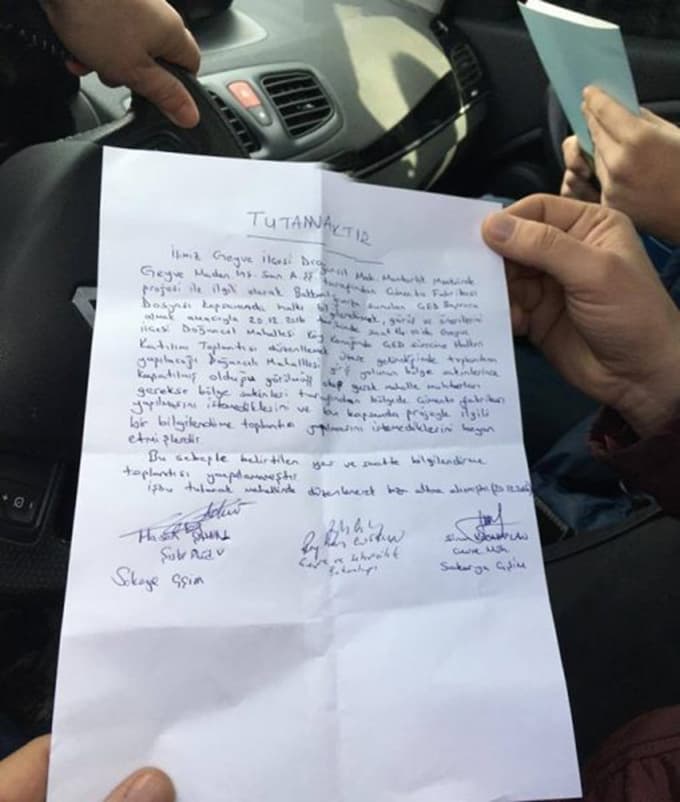 TUTANAKTIR
İlimiz Geyve İlçesi Doğancıl Mah. Mevkiinde
Geyve Maden İnş. San A.Ş tarafından Çimento Fabrikası
projesi ile ilgili olarak Bakanlığa sunulan ÇED Başvuru
Dosyası kapsamında halkı bilgilendirmek, görüş ve önerilerini
almak amacıyla 20.12.2016 saat Geyve
ilçesi Doğancıl Mahallesi Köy Konağında ÇED sürecine Halkın
Katılım Toplantısı düzenlenmek geldiğinde toplantının
yapılacağı Doğancıl Mahallesi giriş yolunun bölge sakinlerince
kapatılmış olduğu görülmüş olup gerek mahalle muhtarları
gerekse bölge sakinleri tarafından bölgede Çimento fabrikası
yapılmasını istemediklerini ve bu kapsamda projeyle ilgili
bir bilgilendirme toplantısı yapılmasını istemediklerini beyan
etmişlerdir.
Bu sebeple belirtilen yer ve saatte bilgilendirme
toplantısı yapılamamıştır
İşbu tutanak mahallinde düzenlenerek imza altına alınmıştır (20.12.2016)
Şube Müdürü
Çevre ve Şehircilik
Çevre Müh.
Sakarya ÇŞİM
Sakarya ÇŞİM